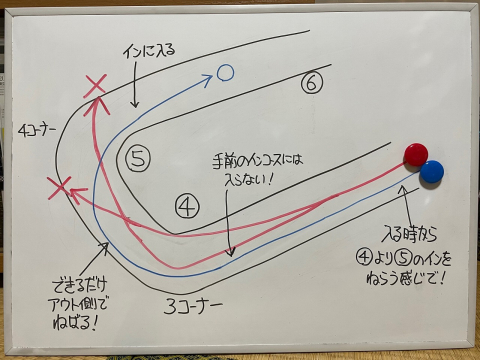 インに入る
⑥
4コーナー
⑤
手前のインコースには
入らない!
④
入る時から
④より⑤のインを
ねらう感じで!
できるだけ
アウト側で
ねばる!
3コーナー